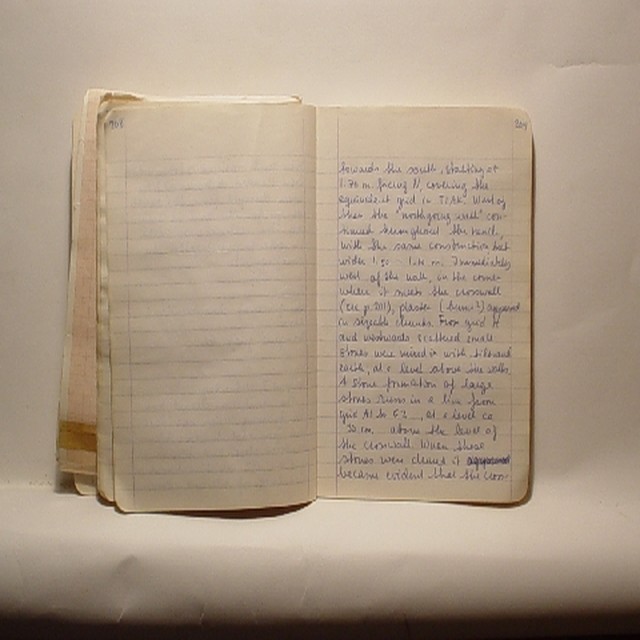 208
209
towards the south, starting at
1.70 m. facing N, covering the
equivalent grid in T. West of
then the "northgoing wall" con-
tinued throughout the trench,
with the same construction but
wider 1.50 - m. Immediately
west of the wall, in the corner
where it meets the crosswall
(see p. 201), plaster ( ?) appeared
in sizeable chunks. From grid
and westwards scattered small
stones were mixed in with tiles and
earth, at a level above the walls.
A stone formation of large
stones runs in a line from
grid A1 to E2, at a level ca
30 cm. above the level of
the crosswall. When these
stones were cleared it
became evident that the cross-